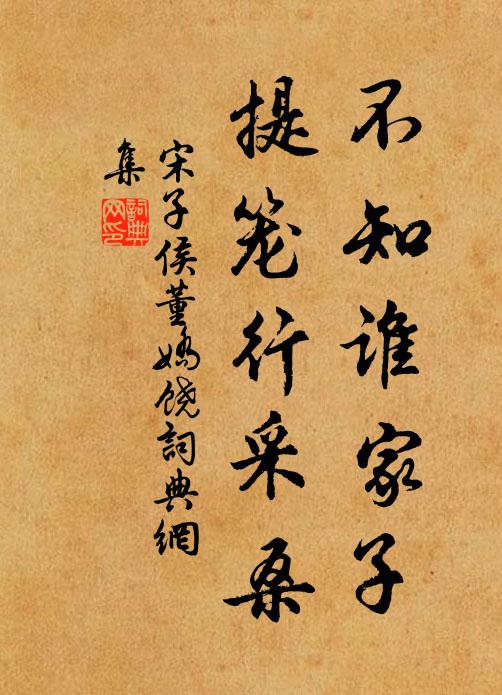 不知谁家子
提笼行采桑
宋子侯董娇饶詞典網
集
詞典
网印